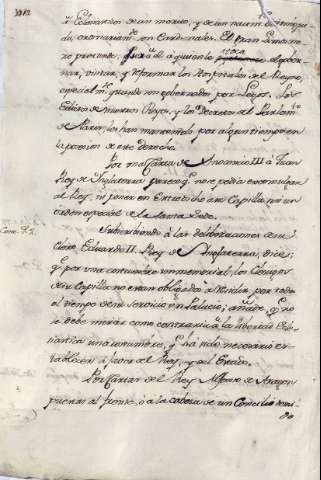 de un nuevo, y de un
en Cardenales. El Gran Limosne
ro pretende, á quien le toca el gober
nar, visitar, y reformar los Hospitales del Reyno,
especialm.te quando son gobernados por Legos. Los
Edictos de nuestros Reyes, y los Decretos del Parlam.to
de Paris, los han mantenido por algun tiempo en
la posesion de este derecho.
Por una Carta de Inocencio III á Juan
Rey de Inglaterra parece q.e no se podia excomulgar
al Rey, ni poner en Entredicho su Capilla sin un
orden especial de la Santa Sede.
Subscribiendo á las deliberaciones de su
Clero Eduardo II. Rey de Inglaterra, dice;
q.e por una costumbre immemorial los Clerigos
de su Capilla no eran obligados á residir por todo
el tiempo de su servicio en Palacio; añade q.e no
se debe mirar como contraria á la libertad Ecle
siastica una costumbre, q.e ha sido necesario es
tablecer á favor del Rey, y del Estado.
Por Cartas del Rey Alfonso de Aragon
puestas al frente, ó á la cabeza de un Concilio